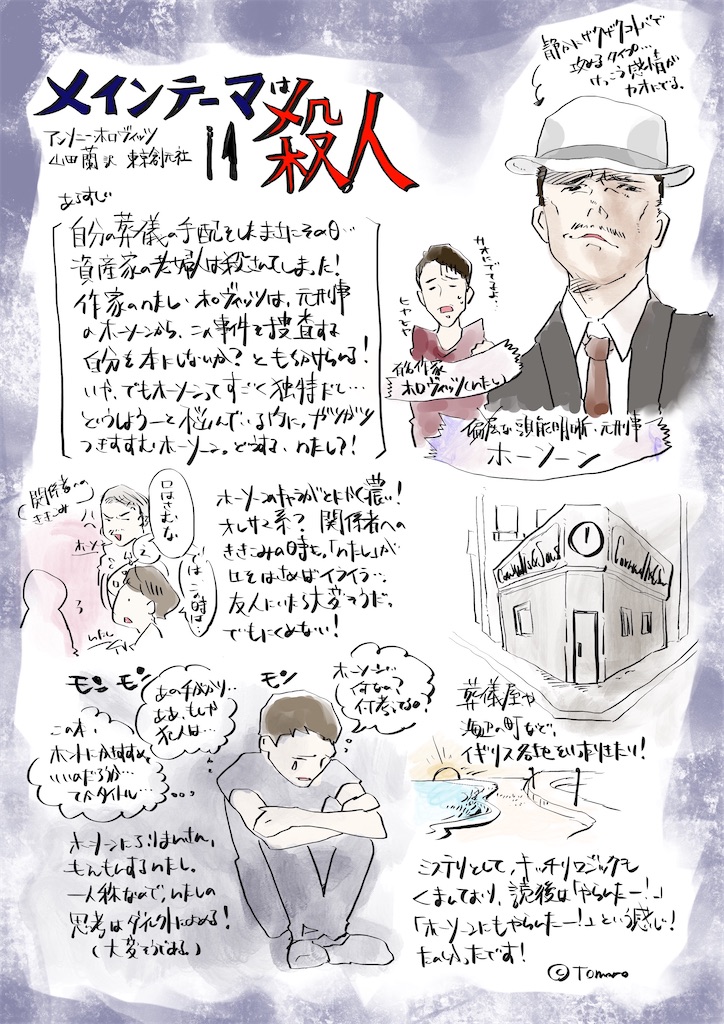 メインテーマは殺人
アンソニー・ホロヴィッツ
山田 蘭 訳 東京創元社
静かにザクザクコトバで
攻めるタイプ…
けっこう感情が
カオにでる。
あらすじ
自分の葬儀の手配をしたまさにその日…
資産家の老婦人は殺されてしまった!
作家のわたし、ホロヴィッツは、元刑事
のホーソーンから、この事件を捜査する
自分を本にしないか?ともちかけられる!
いや、でもホーソーンってすごく独特だし…
どうしようーと悩んでいるうちに、ガツガツ
つきすすむホーソーン。どうする、わたし?!
カオにでてるよ…
ヒヤヒヤ
作家
ホロヴィッツ(わたし)
偏屈な頭脳明晰・元刑事
ホーソーン
関係者への
ききこみ
口はさむな
では、この時は…
ホーソーン
わたし
ホーソーンのキャラがとにかく濃い!
オレサマ系? 関係者への
ききこみの時も、「わたし」が
口をはさめばイライラ…。
友人にいたら大変そうだ。
でもにくめない!
モンモン
モン
あの手がかり…
ああ、もしや
犯人は…
ホーソーンて
何なの?
何考えてるの?
この本、
ホントにかきすすめて
いいのだろうか…
てかタイトル…
葬儀屋や
海辺の町など、
イギリス各地をいったりきたり!
ホーソーンにふりまわされ、
もんもんするわたし。
一人称なので、わたしの
思考はダイレクトによめる!
(大変そうである。)
ミステリとして、キッチリロジックも
くまれており、読後は「やられたー!」
「ホーソーンにもやられたー!」という感じ!
たのしかったです!
© Tomaro